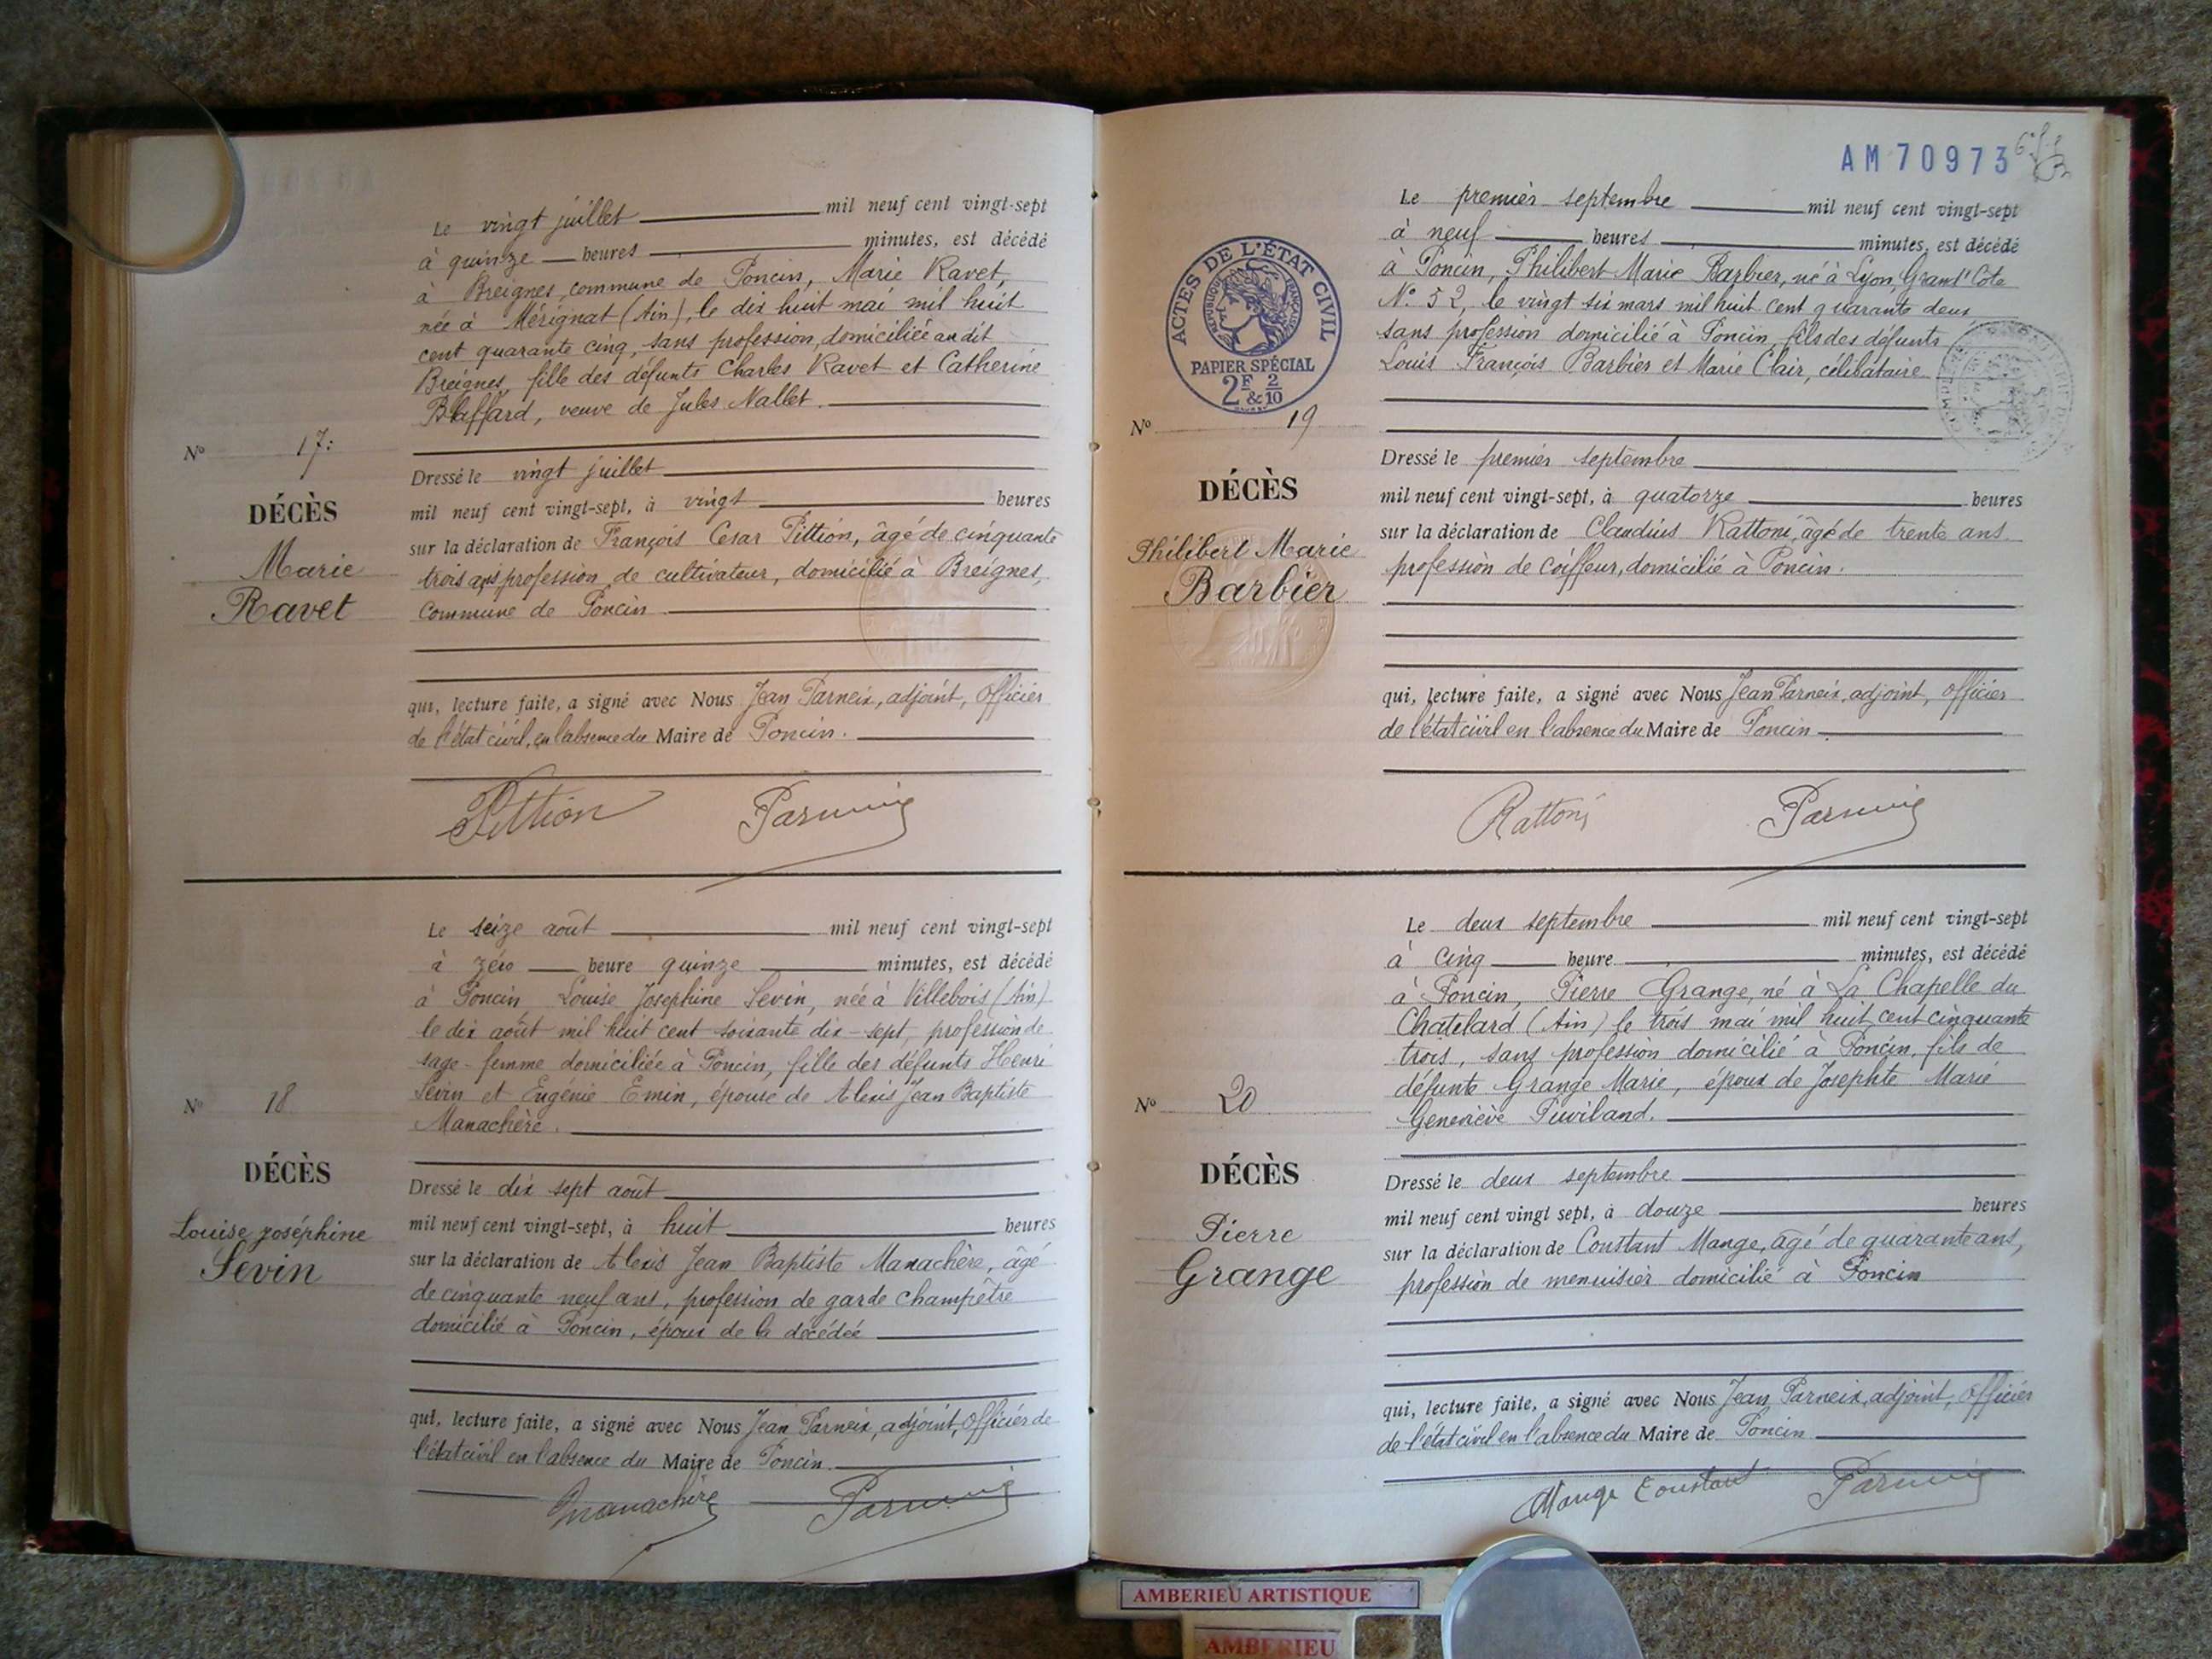 Le vingt juillet mil neuf cent vingt-sept
à quinze heures minutes, est décédé
à Breignes, commune de Poncin, Marie Ravet,
née à Mérignat (Ain), le dix huit mai mil huit
cent quarante cinq, sans profession, domiciliée au dit
Breignes, fille des défunts Charles Ravet et Catherine
Blaffard, veuve de Jules Nallet.
N° 17:
DÉCÈS
Marie
Ravet
Dressé le vingt juillet
mil neuf cent vingt-sept, à vingt heures
sur la déclaration de François César Pittion, âgé de cinquante
trois ans profession de cultivateur, domicilié à Breignes,
commune de Poncin
qui, lecture faite, a signé avec Nous Jean Parneix, adjoint, Officier
de l'état civil, en l'absence du Maire de Poncin.
Pittion Parneix
Le seize août mil neuf cent vingt-sept
à zéro heure quinze minutes, est décédé
à Poncin, Louise Josephine Sevin, née à Villebois (Ain)
le dix août mil huit cent soixante dix-sept, profession de
sage-femme domiciliée à Poncin, fille des défunts Henri
Sevin et Eugénie Emin, épouse de Alexis Jean Baptiste
Manachère.
N° 18
DÉCÈS
Louise Joséphine
Sevin
Dressé le dix sept août
mil neuf cent vingt-sept, à huit heures
sur la déclaration de Alexis Jean Baptiste Manachère, âgé
de cinquante neuf ans, profession de garde champêtre
domicilié à Poncin, époux de la décédée
qui, lecture faite, a signé avec Nous Jean Parneix, adjoint, Officier de
l'état civil en l'absence du Maire de Poncin.
Manachère Parneix
AM 70973
Le premier septembre mil neuf cent vingt-sept
à neuf heures minutes, est décédé
à Poncin, Philibert Marie Barbier, né à Lyon, Grand'Côte
N° 52, le vingt six mars mil huit cent quarante deux
sans profession domicilié à Poncin, fils des défunts
Louis François Barbier et Marie Clair, célibataire
ACTES DE L'ÉTAT CIVIL
RÉPUBLIQUE FRANÇAISE
PAPIER SPÉCIAL
2F 2
&10
N° 19
DÉCÈS
Philibert Marie
Barbier
Dressé le premier septembre
mil neuf cent vingt-sept, à quatorze heures
sur la déclaration de Claudius Rattoni, âgé de trente ans
profession de coiffeur, domicilié à Poncin.
qui, lecture faite, a signé avec Nous Jean Parneix, adjoint, Officier
de l'état civil en l'absence du Maire de Poncin
Rattoni Parneix
Le deux septembre mil neuf cent vingt-sept
à cinq heure minutes, est décédé
à Poncin, Pierre Grange, né à La Chapelle du
Chatelard (Ain) le trois mai mil huit cent cinquante
trois, sans profession domicilié à Poncin, fils de
défunte Grange Marie, époux de Josephte Marie
Geneviève Puviland.
N° 20
DÉCÈS
Pierre
Grange
Dressé le deux septembre
mil neuf cent vingt sept, à douze heures
sur la déclaration de Constant Mange, âgé de quarante ans,
profession de menuisier domicilié à Poncin
qui, lecture faite, a signé avec Nous Jean Parneix, adjoint, Officier
de l'état civil en l'absence du Maire de Poncin
Mange Constant Parneix
AMBERIEU ARTISTIQUE
AMBERIEU